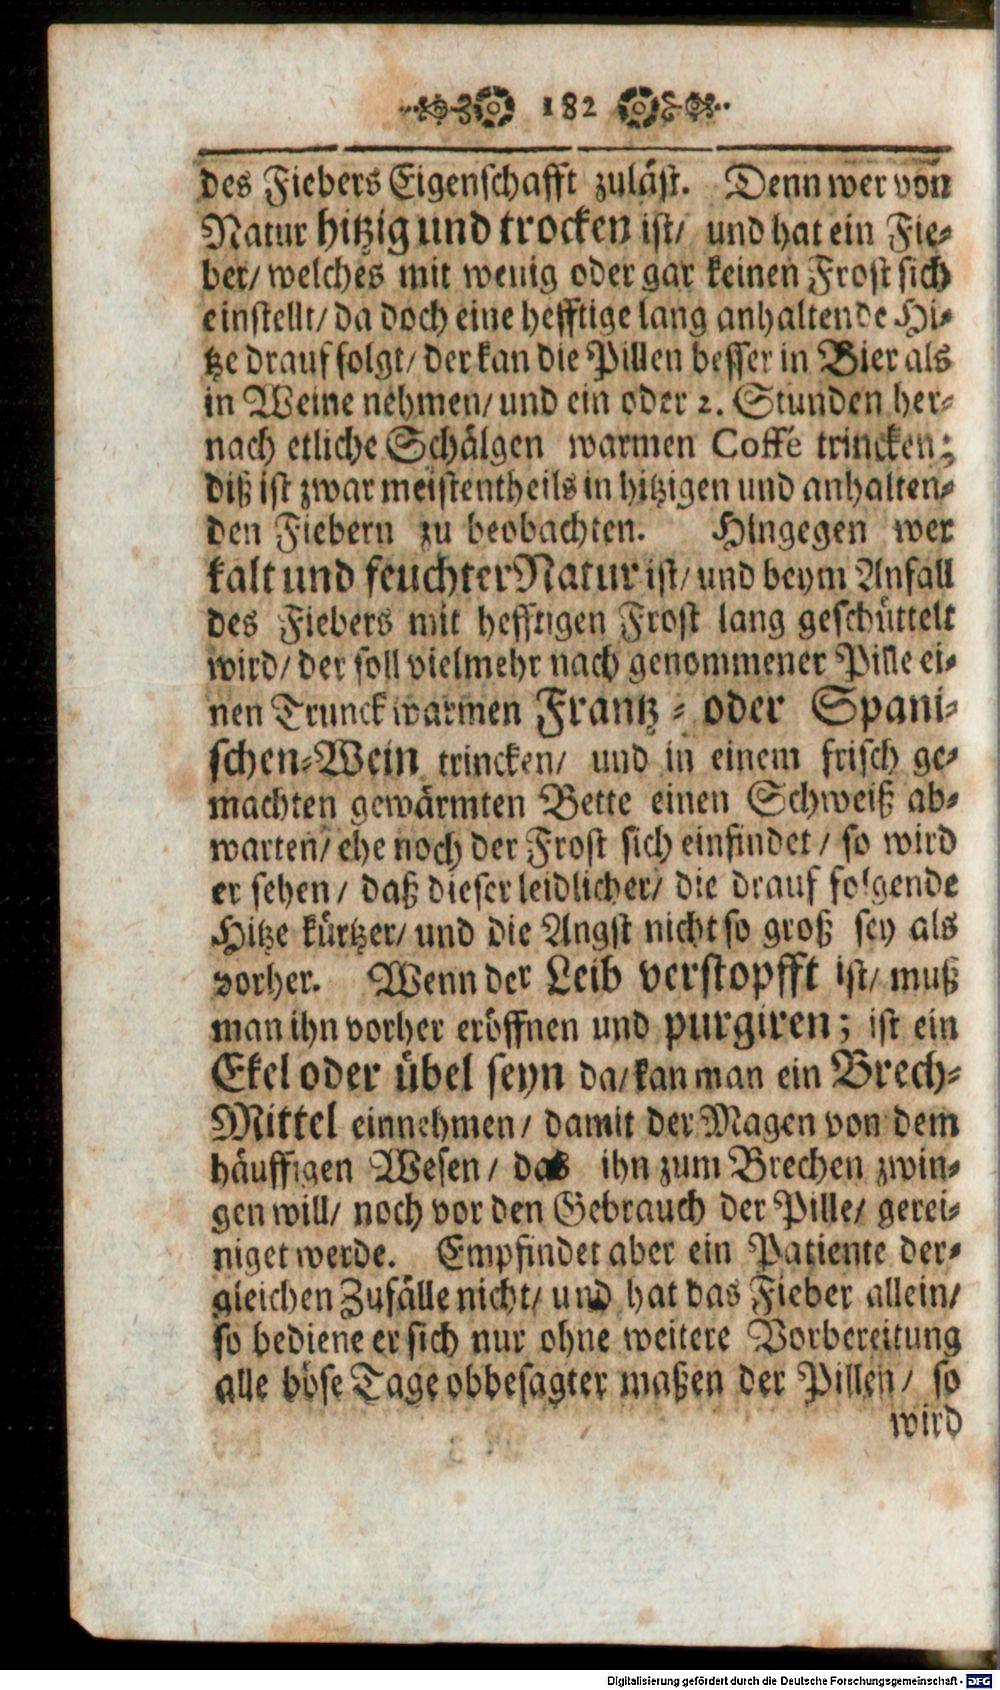 182
des Fiebers Eigenschafft zuläst. Denn wer von
Natur hitzig und trocken ist/ und hat ein Fie-
ber/ welches mit wenig oder gar keinen Frost sich
einstellt/ da doch eine hefftige lang anhaltende Hi-
tze drauf folgt/ der kan die Pillen besser in Bier als
in Weine nehmen/ und ein oder 2. Stunden her-
nach etliche Schälgen warmen Coffé trincken;
diß ist zwar meistentheils in hitzigen und anhalten-
den Fiebern zu beobachten. Hingegen wer
kalt und feuchter Natur ist/ und beym Anfall
des Fiebers mit hefftigen Frost lang geschüttelt
wird/ der soll vielmehr nach genommener Pille ei-
nen Trunck warmen Frantz- oder Spani-
schen-Wein trincken/ und in einem frisch ge-
machten gewärmten Bette einen Schweiß ab-
warten/ ehe noch der Frost sich einfindet/ so wird
er sehen/ daß dieser leidlicher/ die drauf folgende
Hitze kürtzer/ und die Angst nicht so groß sey als
vorher. Wenn der Leib verstopfft ist/ muß
man ihn vorher eröffnen und purgiren; ist ein
Ekel oder übel seyn da/ kan man ein Brech-
Mittel einnehmen/ damit der Magen von dem
häuffigen Wesen/ das ihn zum Brechen zwin-
gen will/ noch vor den Gebrauch der Pille/ gerei-
niget werde. Empfindet aber ein Patiente der-
gleichen Zufälle nicht/ und hat das Fieber allein/
so bediene er sich nur ohne weitere Vorbereitung
alle böse Tage obbesagter maßen der Pillen/ so
wird
Digitalisierung gefördert durch die Deutsche Forschungsgemeinschaft - DFG